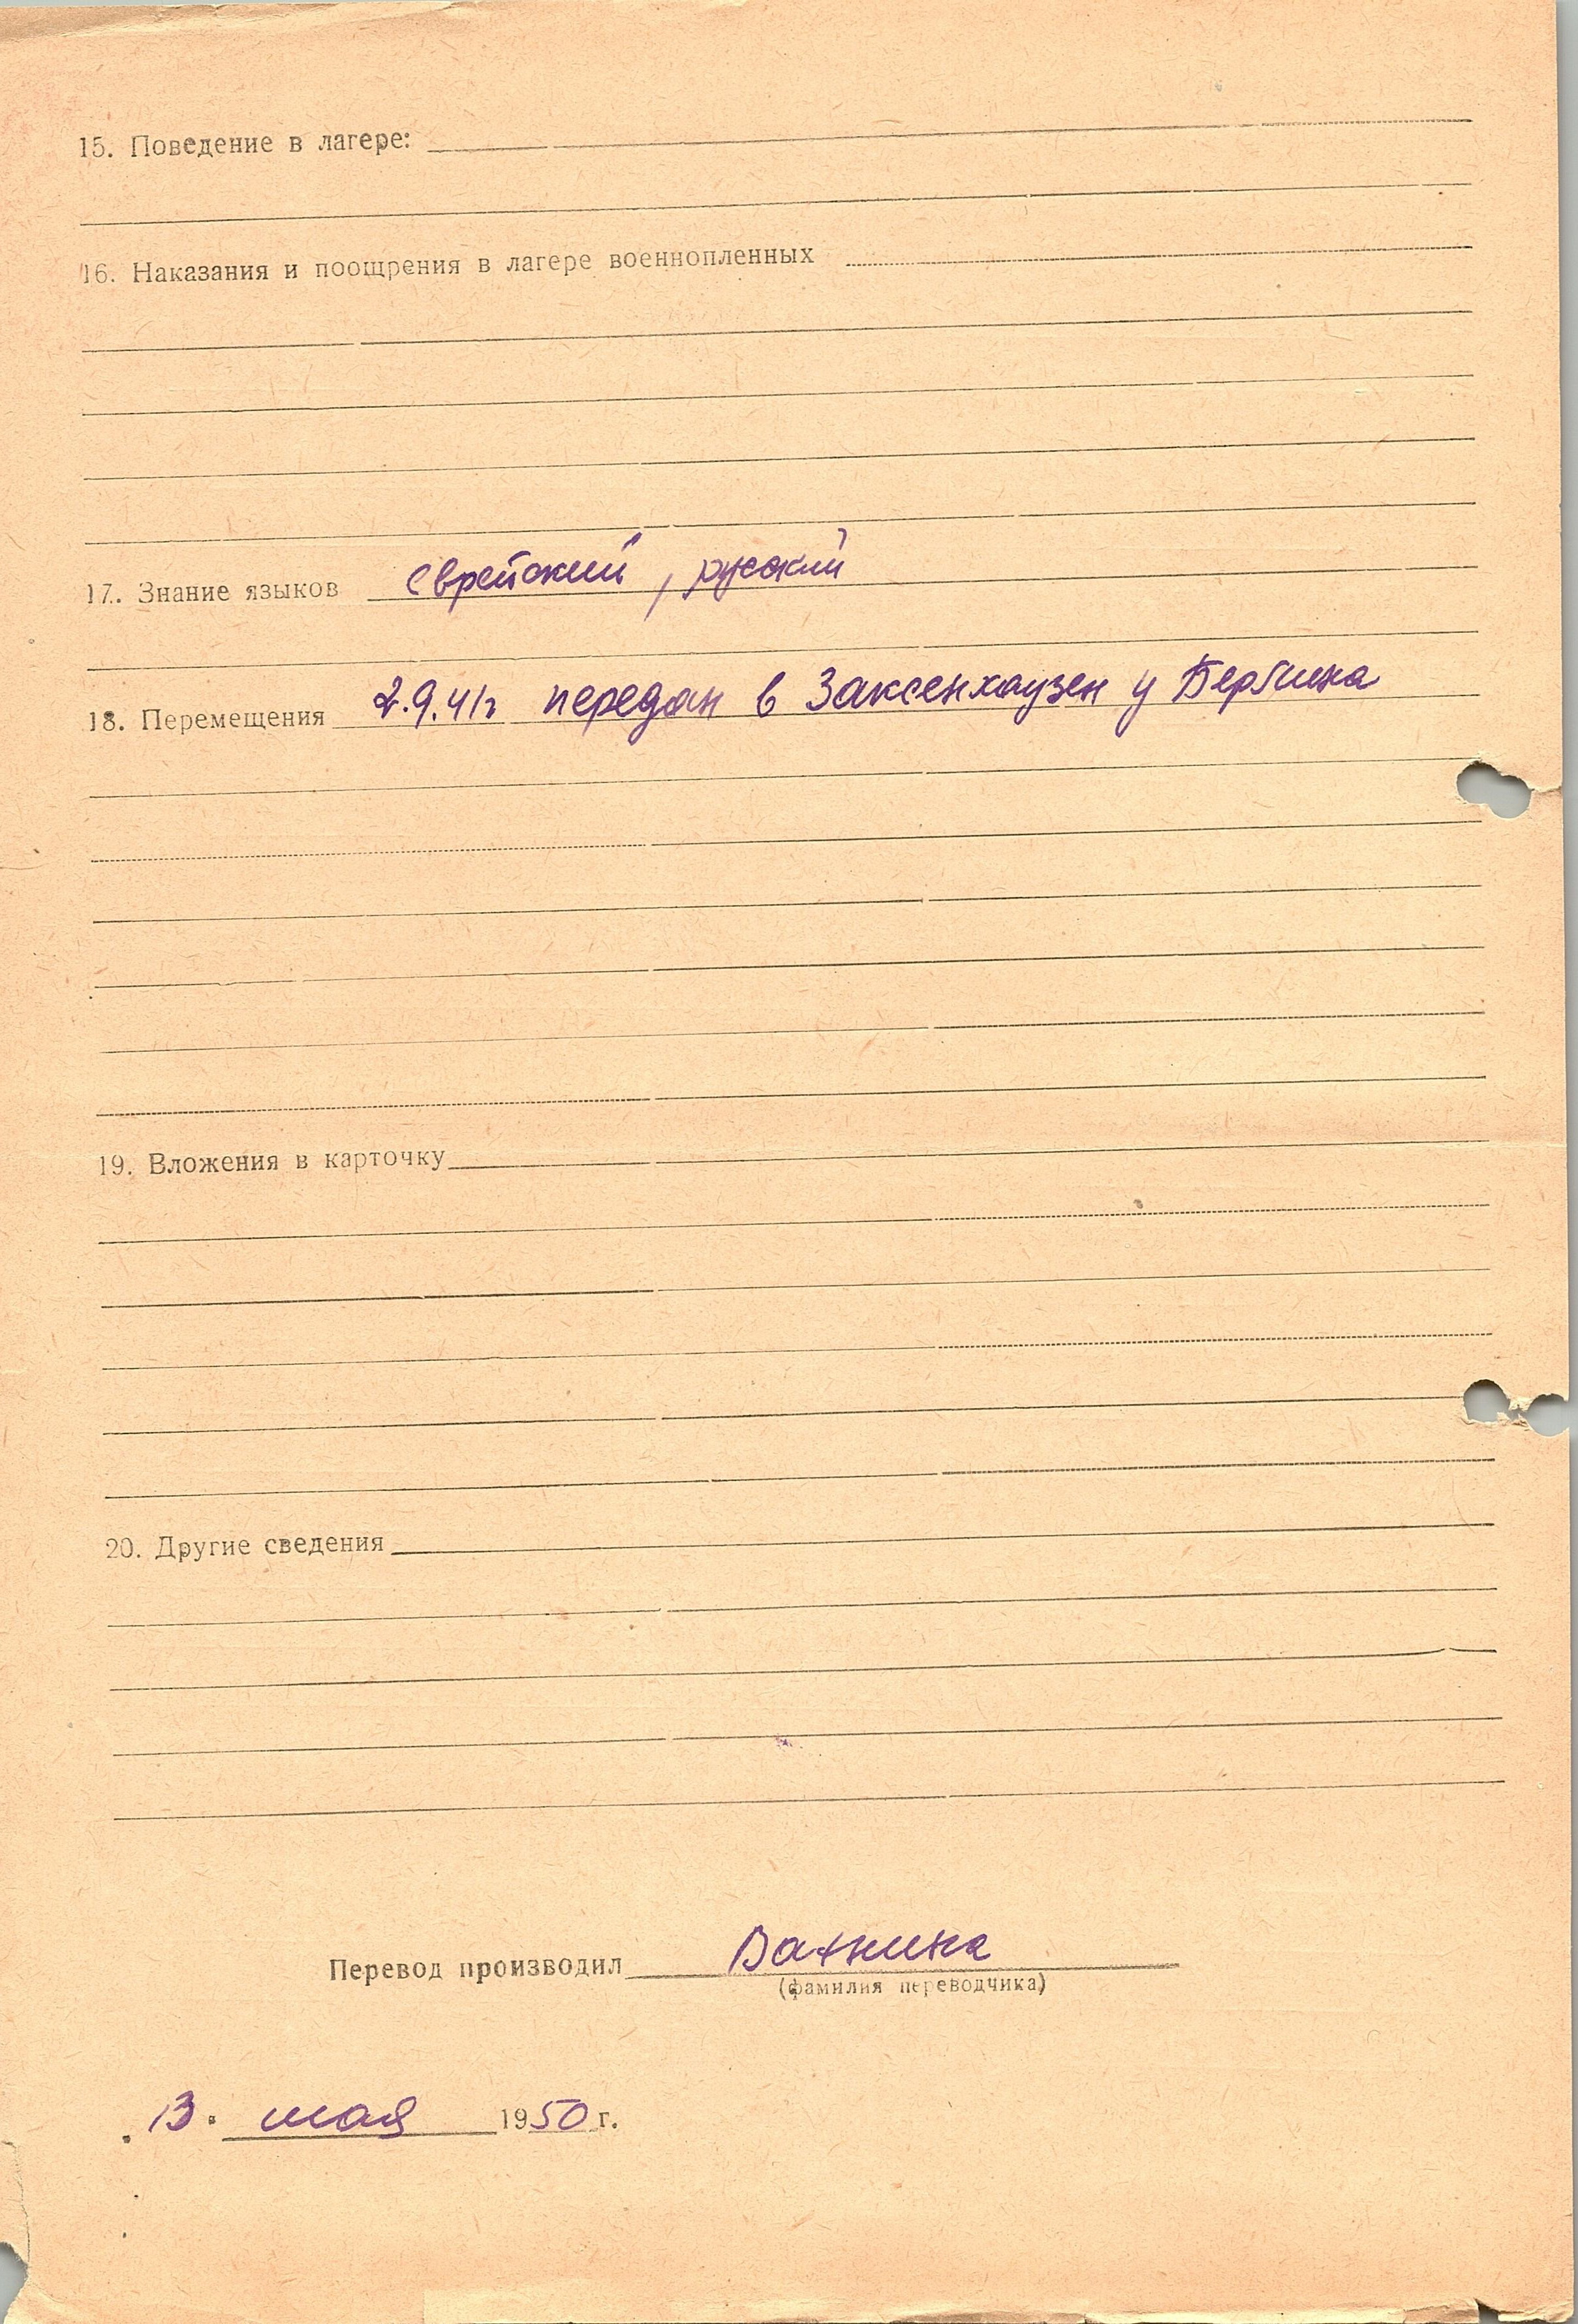 15. Поведение в лагере:
16. Наказания и поощрения в лагере военнопленных
17. Знание языков еврейский, русский
18. Перемещения 2.9.41г передан в Заксенхаузен у Берлина
19. Вложения в карточку
20. Другие сведения
Перевод производил
(фамилия переводчика)
13. мая 1950 г.